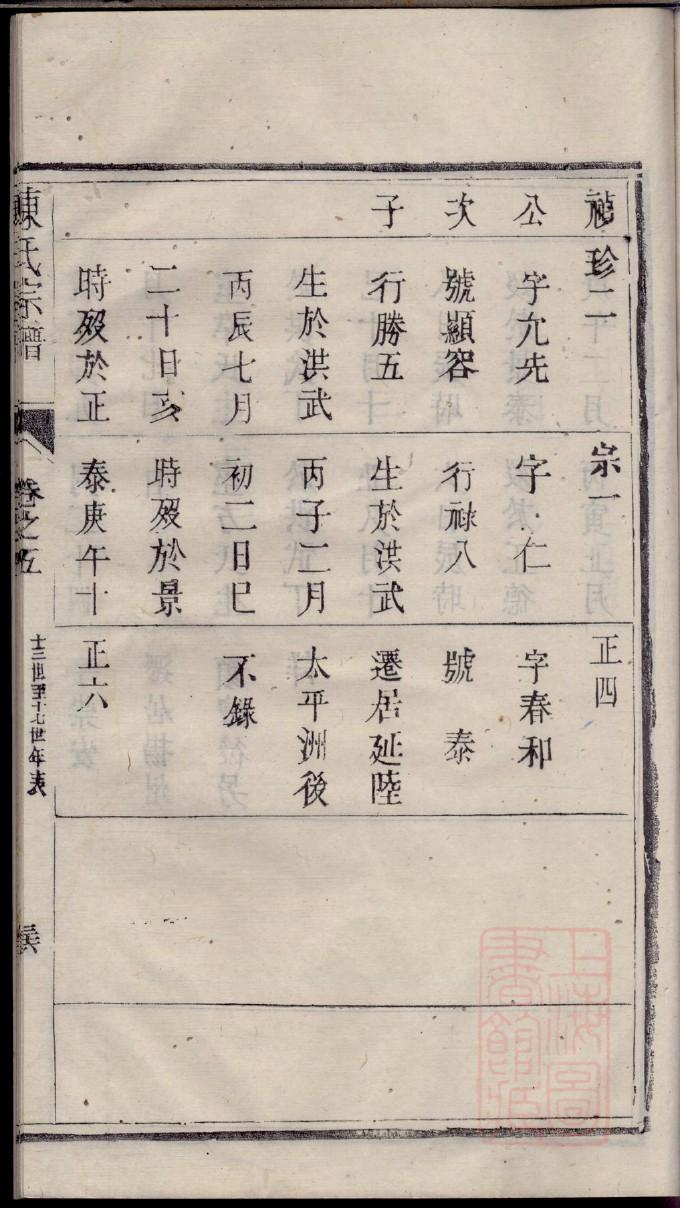 公
次
子
珍二
字允先
號顯容
行勝五
生於洪武
丙辰七月
二十日亥
時歿於正
宗一
字 仁
行祿八
生於洪武
丙子二月
初二日巳
時歿於景
泰庚午十
正四
字春和
號 泰
遷居延陸
太平洲後
不錄
正六
陳氏宗譜
卷之五
十三世至十七世年表
上海圖書館藏